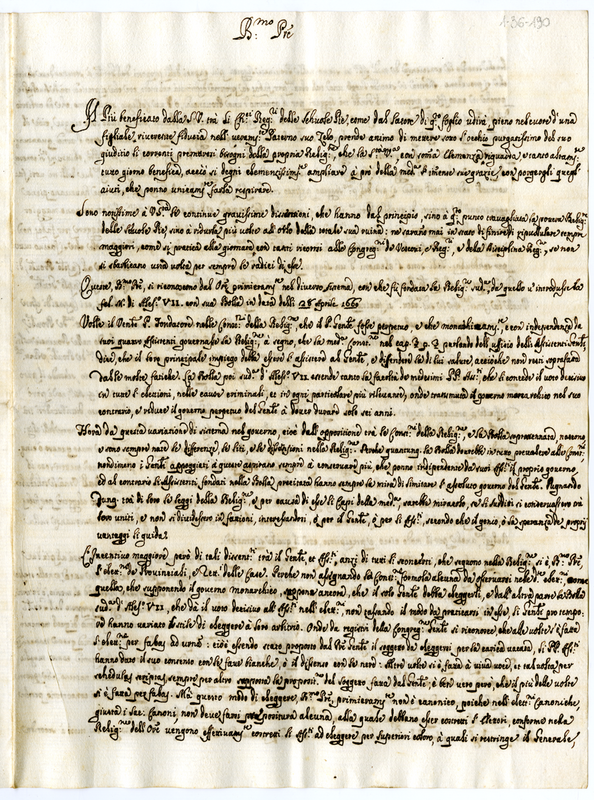 1-36-190
B.mo Pre
Il Più beneficato dalla S.V. trà li Ch.ci Reg.ri delle Schuole Pie, come dal Sacro di q.to foglio udirà, pieno nel cuore d'una
figliale, riverente fiducia nell' Paterno suo Zelo, prende animo di mettere sotto l'occhio purgatissimo del suo
giuditio li correnti premurosi bisogni della propria Relig.ne, che la S.V. con somma Clemenza riguarda, e tanto
giorno benefica, acciò si degni clementissim.te ampliare à prò della med.ma l'immense sue grazie, con porgergli quegli
aiuti, che ponno unicam.te farla respirare.
Sono notissime à V. le continue gravissime dissensioni, che hanno dal principio sino à q.to punto travagliata la povera Relig.ne
delle Schuole Pie, sino à ridurla più volte all' orlo della totale sua ruina: ne saranno mai in stato di finirsi ripullulare sempre
maggiori, come si pratica alla giornata con tanti ricorsi alle Congreg.ni de Vescovi, e Reg.ri, e della Disciplina Reg.re, se non
si sbarbicano una volta per sempre le radici di esse.
Queste, B.mo P.re, si riconoscono dal P.re primieram.te nel diverso sistema, con che fù fondata la Relig.ne sud.ta, da quello v'introdusse la
fel. M. di Aless.o VII. con sua Bolla in data delli 28 Aprile 1660
Volle il Vener.e P. Fondatore nelle Const.ni della Relig.ne che il P. Gen.le fosse perpetuo, e che monarchicam.te, e con independenza da
suoi quatro Assistenti governasse la Relig.ne, à segno, che la med.me Const.ni nel cap. 2. p. 2 parlando dell' uffizio delli Assistenti Gen.li
dice, che il loro principale impiego esser l'assistere al Gen.le, e difendere la di lui salute, accioche non resti sopraffatto
dalle molte fatiche. La Bolla poi sud.ta d' Aless.o VII estende tanto la facoltà de medesimi PP. Ass.ti, che li concede il voto decisivo
in tutte l'elezioni, nelle cause criminali, et in ogni particolare più rilevante, onde transmuta il governo monarchico nel suo
contrario, e riduce il governo perpetuo del Gen.le à dover durare solo sei anni.
Hora da questa variazione di sistema nel governo, cioè dall' opposizione trà le Const.ni della Relig.ne, e la Bolla sopraccennata, nacquero,
e sono sempre nate le differenze, le liti, e le dissensioni nella Relig.ne. Perche quantunq. la Bolla dovrebbe in tutto prevalere alle Const.ni
nondimeno i Gen.li appoggiati à queste aspirano sempre à conservare più, che ponno independente da suoi Ass.ti il proprio governo,
ed al contrario li Assistenti fondati nella Bolla precitata hanno sempre la mira di limitare l'assoluto governo del Gen.le. Pugnando
dunq. trà di loro le leggi della Relig.ne, e per causa di esse li Capi della med.ma, sarebbe miracolo, se li sudditi si conservassero trà
loro uniti, e non si dividessero in fazioni, interessandosi, ò per il Gen.le, ò per li Ass.ti, secondo che il genio, ò la speranza de proprij
vantaggi li guida.
L'Incentivo maggiore però di tali dissensi.ni trà il Gen.le, et Ass.ti anzi di tutti li sconcerti, che seguono nella Relig.ne si è, B.mo P.re,
l'elez.ne de Provinciali, e Ret.ri delle Case. Perche non assegnando le Const.ni formola alcuna da osservarsi nelle d.te elez.ni, come
quelle, che supponendo il governo monarchico, suppone ancora, che il solo Gen.le debba eleggerli, e dall' altra parte la Bolla
sud.ta d' Aless.o VII, che dà il voto decisivo alli Ass.ti nell' elez.ni, non tassando il modo da praticarsi in esse, li Gen.li pro tempo-
re hanno variato stile di eleggere à loro arbitrio. Onde da registri della Congreg.ne Gen.le si riconosce, che alle volte si è fatta
l'elez.ne per fabas ad unum: cioè essendo stato proposto dal P.re Gen.le il soggetto da eleggersi per la carica vacante, li PP. Ass.ti
hanno dato il suo consenso con le fave bianche, ò il dissenso con le nere: Altre volte si è fatta à viva voce, et tal volta per
schedulas secretas, sempre per altro supposta la proposiz.ne del soggetto fatta dal Gen.le; è ben vero però, che il più delle volte
si è fatta per fabas. Mà questo modo di eleggere, B.mo P.re, primieram.te non è canonico, poiche nell' elett.ni Canoniche,
giusta i Sac. Canoni, non deve farsi proposizione alcuna, alla quale debbano esser costretti l' Elettori, conforme nella
Relig.ne dell' Ore vengono effettivam.te costretti li Ass.ti ad eleggere per superiori coloro, à quali si restringe il Generale,